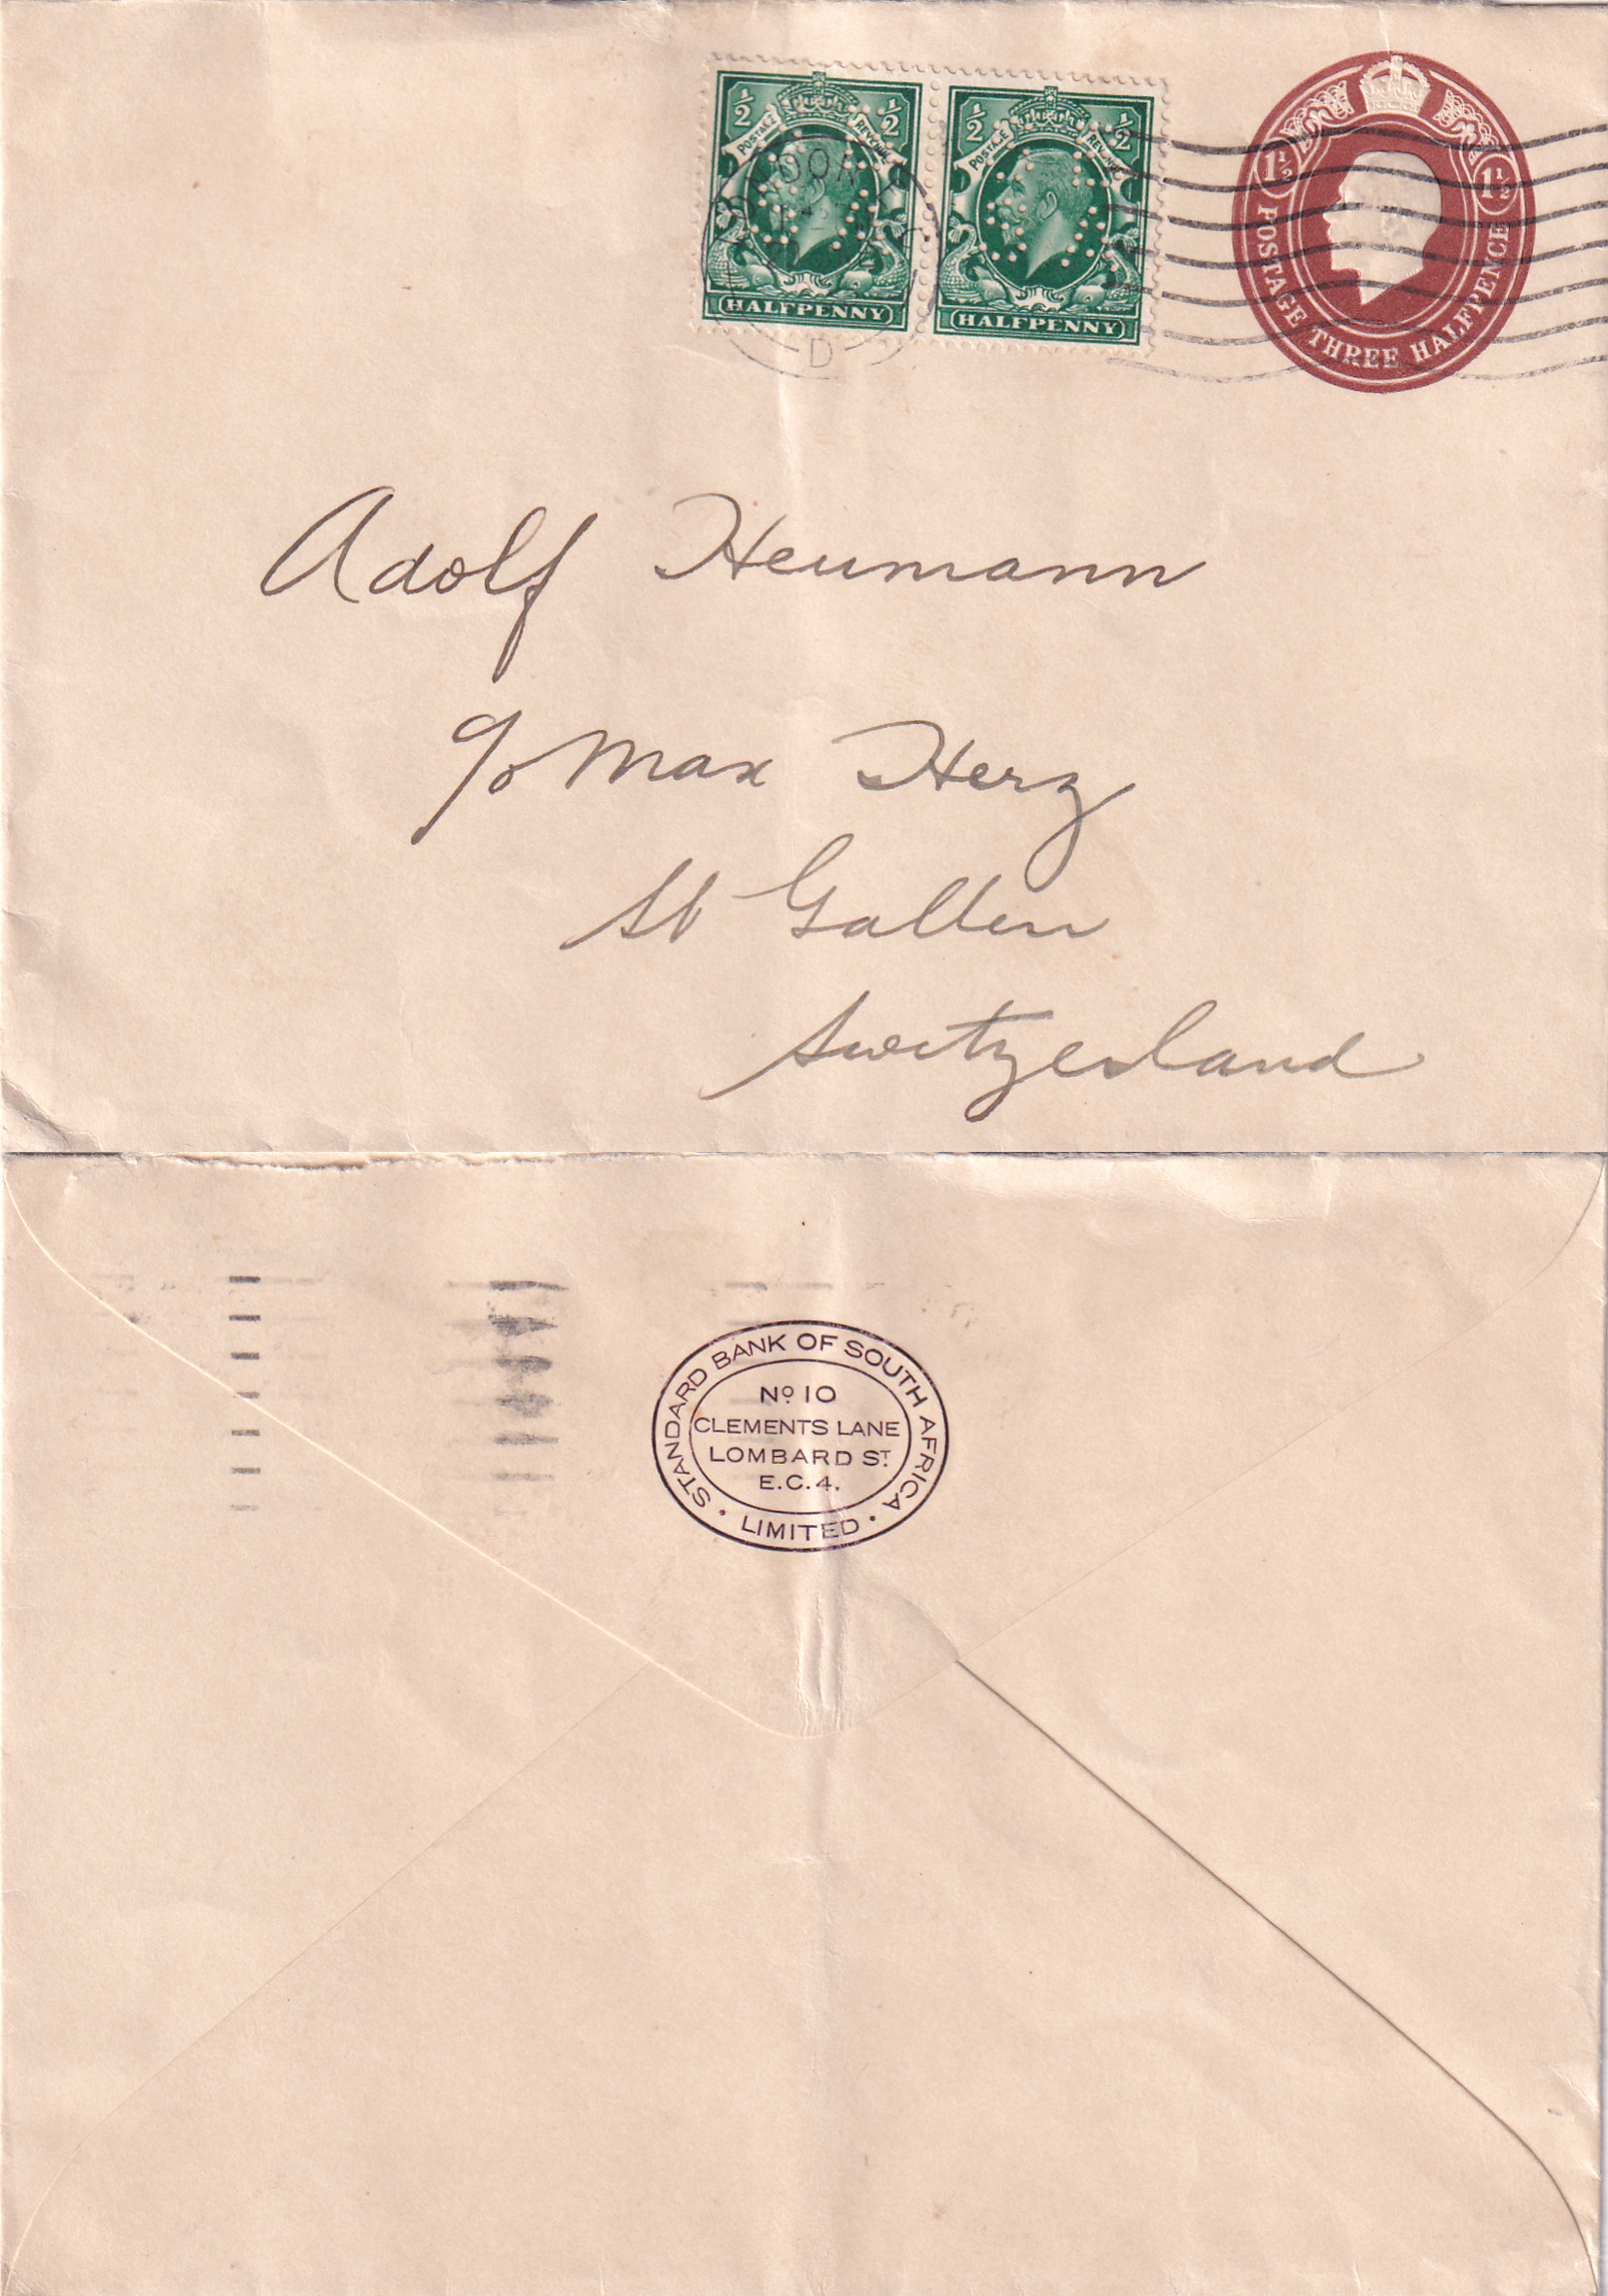 ½ ½
POSTAGE REVENUE
HALFPENNY
½ ½
POSTAGE REVENUE
HALFPENNY
LONDON
D
1½ 1½
POSTAGE THREE HALFPENCE
Adolf Heumann
c/o Max Herz
St Gallen
Switzerland
STANDARD BANK OF SOUTH AFRICA
· LIMITED ·
Nº 10
CLEMENTS LANE
LOMBARD ST.
E.C.4.